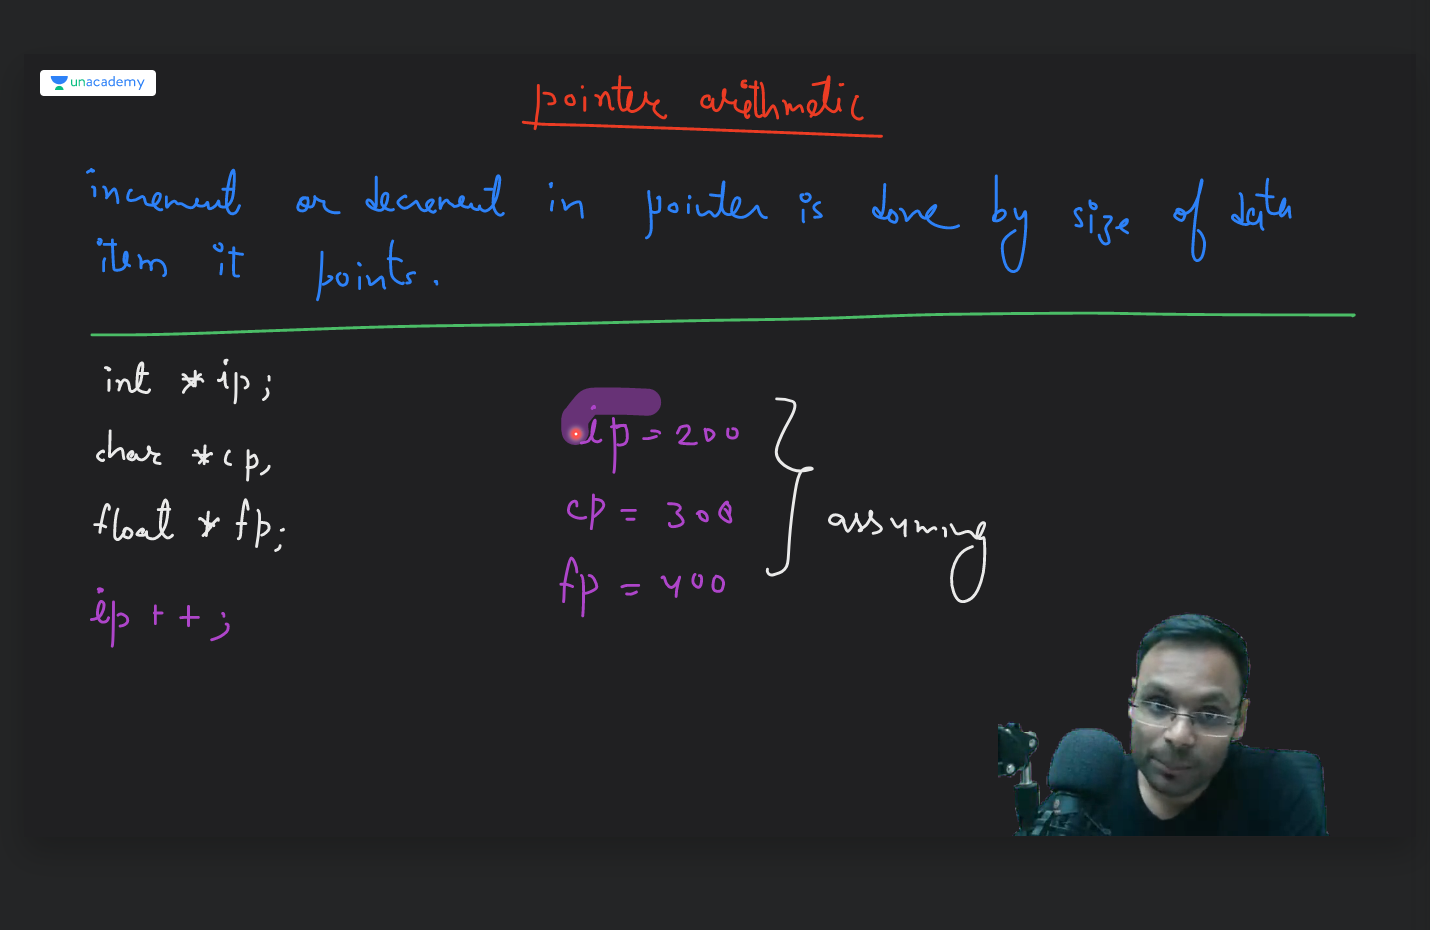 unacademy
pointer arithmetic
increment or decrement in pointer is done by size of data
item it points.
int *ip;
char *cp,
float *fp;
ip++;
ip = 200
cp = 300
fp = 400
assuming